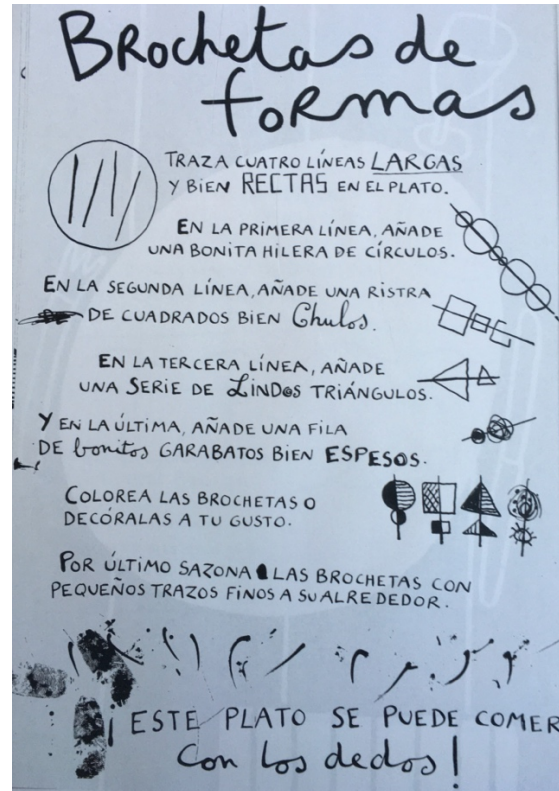 Brochetas de
formas
TRAZA CUATRO LÍNEAS LARGAS
Y BIEN RECTAS EN EL PLATO.
EN LA PRIMERA LÍNEA, AÑADE
UNA BONITA HILERA DE CÍRCULOS.
EN LA SEGUNDA LÍNEA, AÑADE UNA RISTRA
DE CUADRADOS BIEN Chulos.
EN LA TERCERA LÍNEA, AÑADE
UNA SERIE DE LINDOS TRIÁNGULOS.
Y EN LA ÚLTIMA, AÑADE UNA FILA
DE bonitos GARABATOS BIEN ESPESOS.
COLOREA LAS BROCHETAS O
DECÓRALAS A TU GUSTO.
POR ÚLTIMO SAZONA LAS BROCHETAS CON
PEQUEÑOS TRAZOS FINOS A SU ALREDEDOR.
¡ESTE PLATO SE PUEDE COMER
con los dedos!